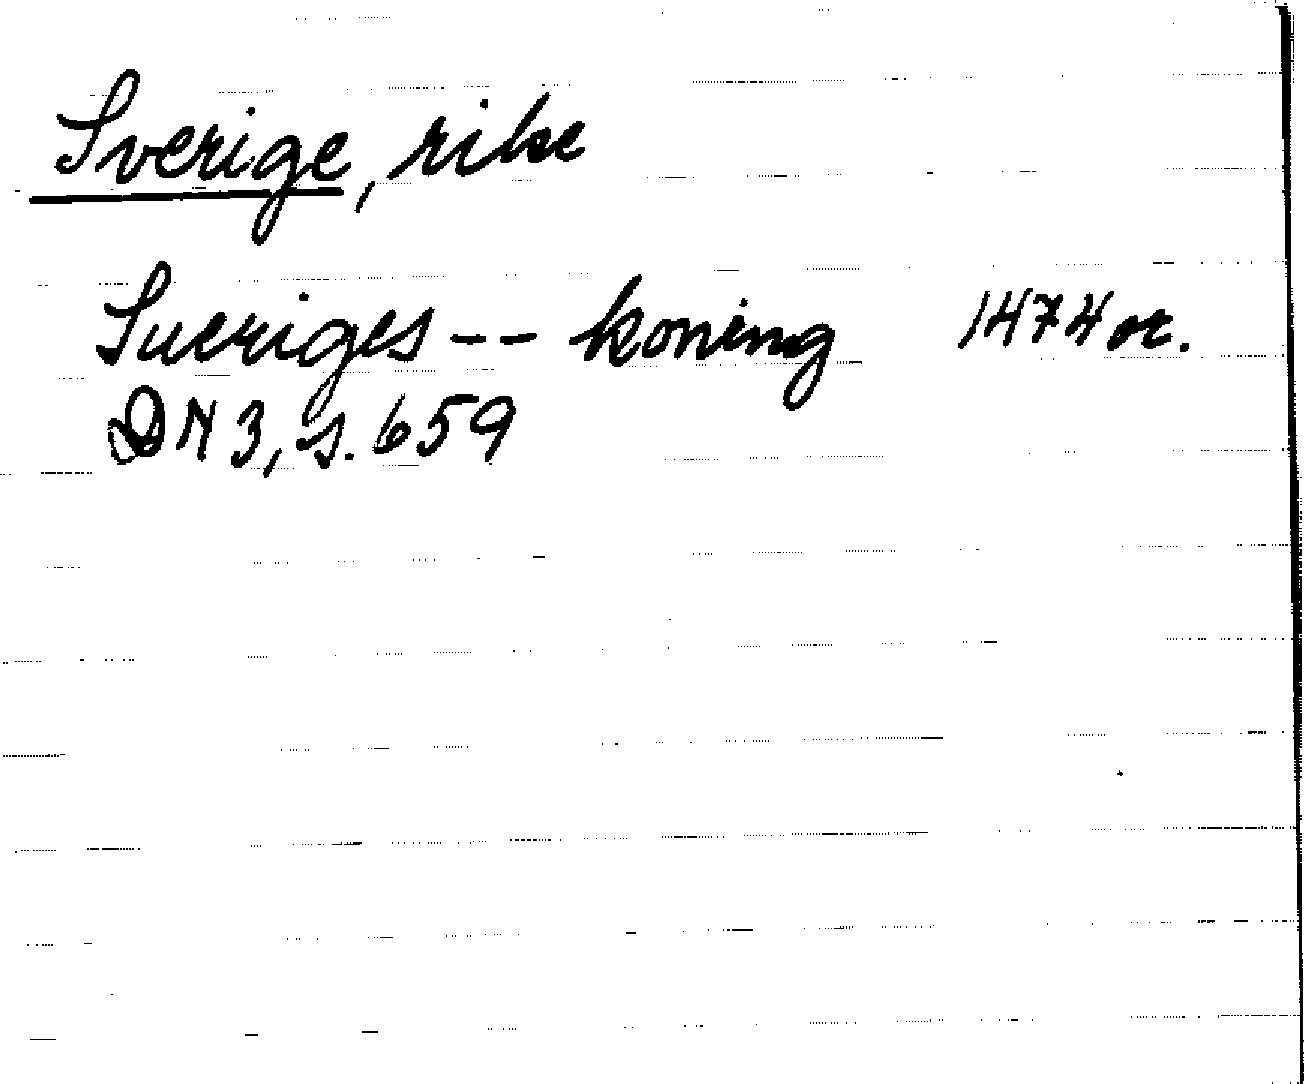 Sverige, rike
Sueriges -- koning 1474 or.
DN 3, s. 659